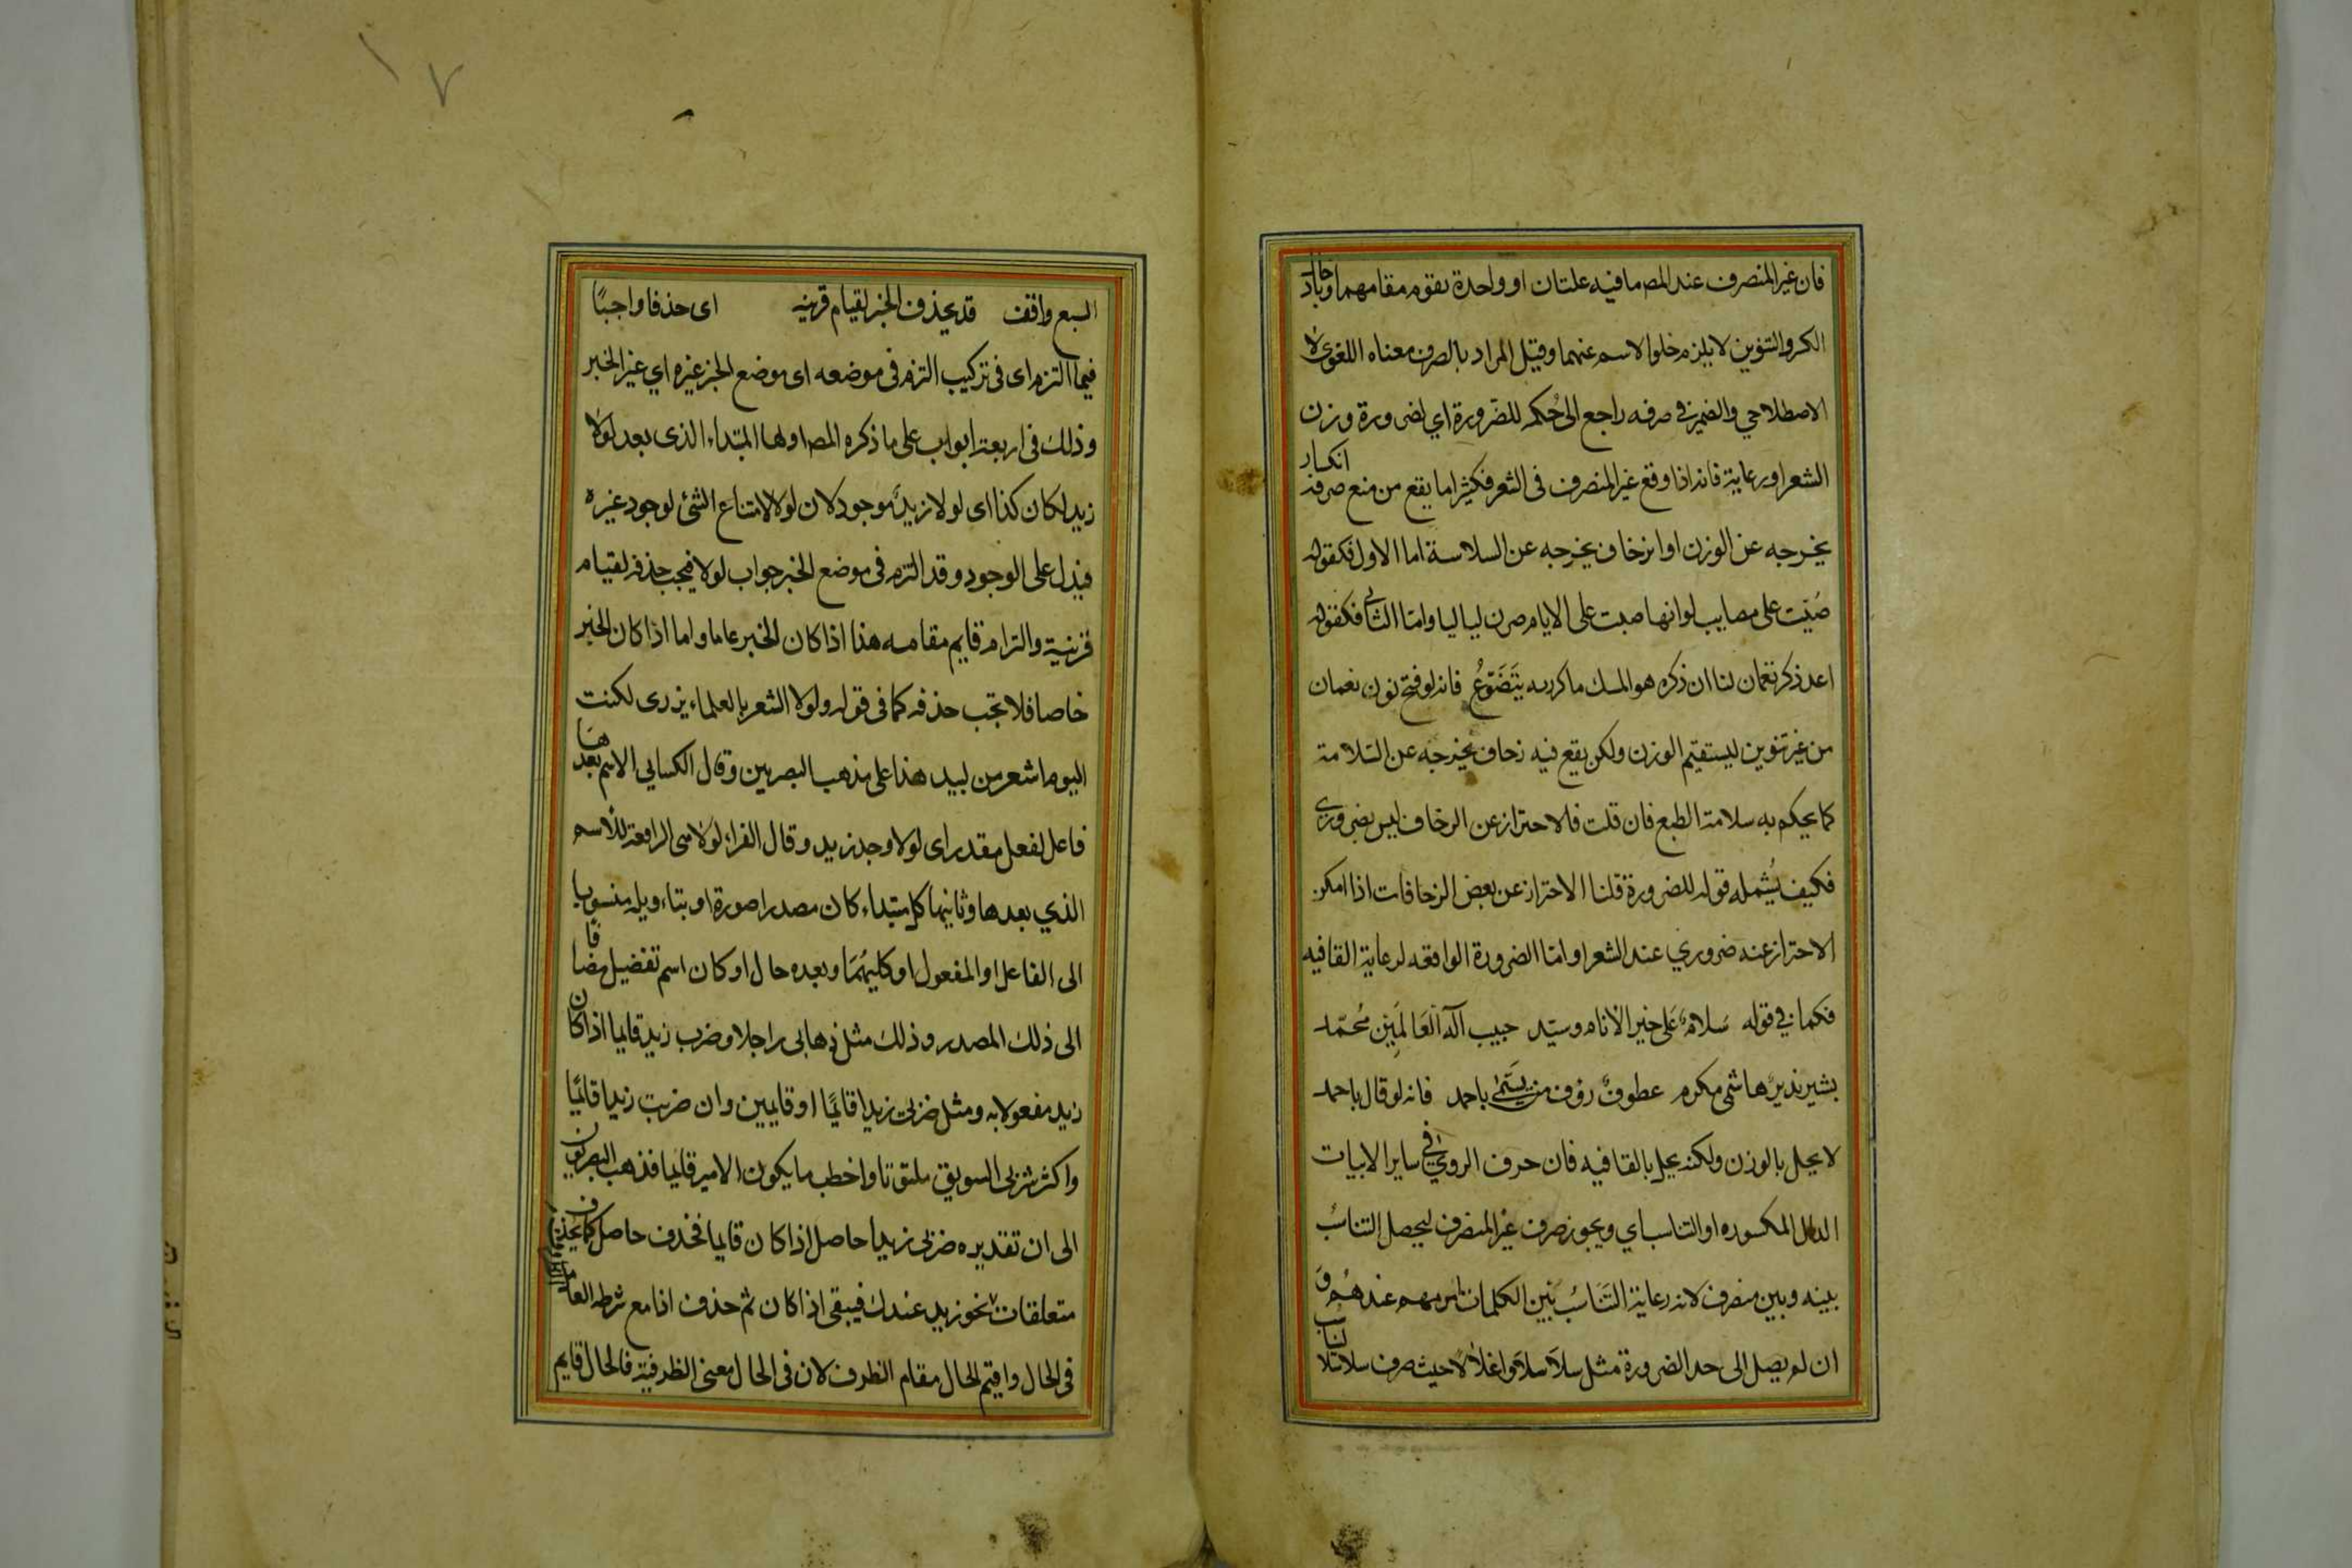 فان غير المنصرف عند المصـ ما فيه علتان او واحدة تقوم مقامهما وبادخال
الكسر والتنوين لا يلزم خلوا لاسم عنهما وقيل المراد بالصرف معناه اللغوى لا
الاصطلاحي والضمير في صرفه راجع الى حُكمه للضّرورة اي لضرورة وزن
الشعر اورعاية فانه اذا وقع غير المنصرف فى الشعر فكثيرا ما يقع من منع صرفه انكسار
يخرجه عن الوزن او انزحاف يخرجه عن السلاسة اما الاول فكقوله
صُبّت على مصايب لو انها صبت على الايام صرن لياليا وامّا الثانى فكقوله
اعد ذكر نعمان لنا ان ذكره هو المسك ما كررته يتَضَوّعُ فانه لو فتح نون نعمان
من غير تنوين ليستقيم الوزن ولكن يقع فيه زحاف يخرجه عن السّلامة
كما يحكم به سلامة الطبع فان قلت فالاحتراز عن الزحاف ليس بضرورى
فكيف يُشمله قوله للضرورة قلنا الاحتراز عن بعض الزحافات اذا امكن
الاحتراز عنه ضروري عند الشعرا وامّا الضرورة الواقعه لرعاية القافيه
فكما في قوله سَلامٌ عَلى خير الانام وسيّد حبيب آله العَالمِين مُحمّد
بشير نذير هاشمى مكرم عطوفٌ رؤف من يُسَمّى باحمد فانه لو قال باحمد
لا يخل بالوزن ولكنه يخل بالقافيه فان حرف الروي في ساير الابيات
الدال المكسوره او التناسب اي ويجوز صرف غير المنصرف ليحصل التناسُب
بينه وبين منصرف لانه رعاية التَنَاسُب بَين الكلمات امر مهم عندهُم وَ
ان لم يصل الى حد الضرورة مثل سلاَسلاً واغلالاً حيث صرف سلاسلا لتناسب
السبع واقف قد يحذف الخبر لقيام قرينه اى حذفا واجبًا
فيما التزم اى فى تركيب التزم فى موضعه اى موضع الخبر غيره اي غير الخبر
وذلك فى اربعة ابواب على ما ذكره المصـ اولها المبتداء الذى بعد لولا
زيد لكان كذا اى لولا زيدٌ موجود لان لولا لامتناع الشئ لوجود غيره
فيدل على الوجود وقد التزم فى موضع الخبر جواب لولا فيجب حذفه لقيام
قرينية والتزام قايم مقامه هذا اذا كان الخبر عاما واما اذا كان الخبر
خاصا فلا تجب حذفه كما فى قوله ولولا الشعر بالعلماء يزرى لكنت
اليوم اشعر من لبيد هذا على مذهب البصريين وقال الكسايي الاسم بعدها
فاعل لفعل مقدر اى لولا وجد زيد وقال الفراء لولا هى الرافعة للاسم
الذي بعدها وثانيها كل مبتداء كان مصدرا صورة او بتاءويله منسوبا
الى الفاعل او المفعول او كليهُمَا وبعده حال او كان اسم تفضيل مضافا
الى ذلك المصدر وذلك مثل ذهابى راجلا وضرب زيد قايما اذا كان
زيد مفعولا به ومثل ضربى زيدا قايمًا او قايمين وان ضربت زيدا قايمًا
واكثر شربى السويق ملتوتا واخطب ما يكون الامير قايما فذهب البصريون
الى ان تقديره ضربى زيدا حاصل اذا كان قايما فحذف حاصل كما يحذف
متعلقات نحو زيد عندك فيبقى اذا كان ثم حذف اذا مع شرطه العامل
فى الحال واقيم الحال مقام الظرف لان فى الحال معنى الظرفية فالحال قايم
١٧